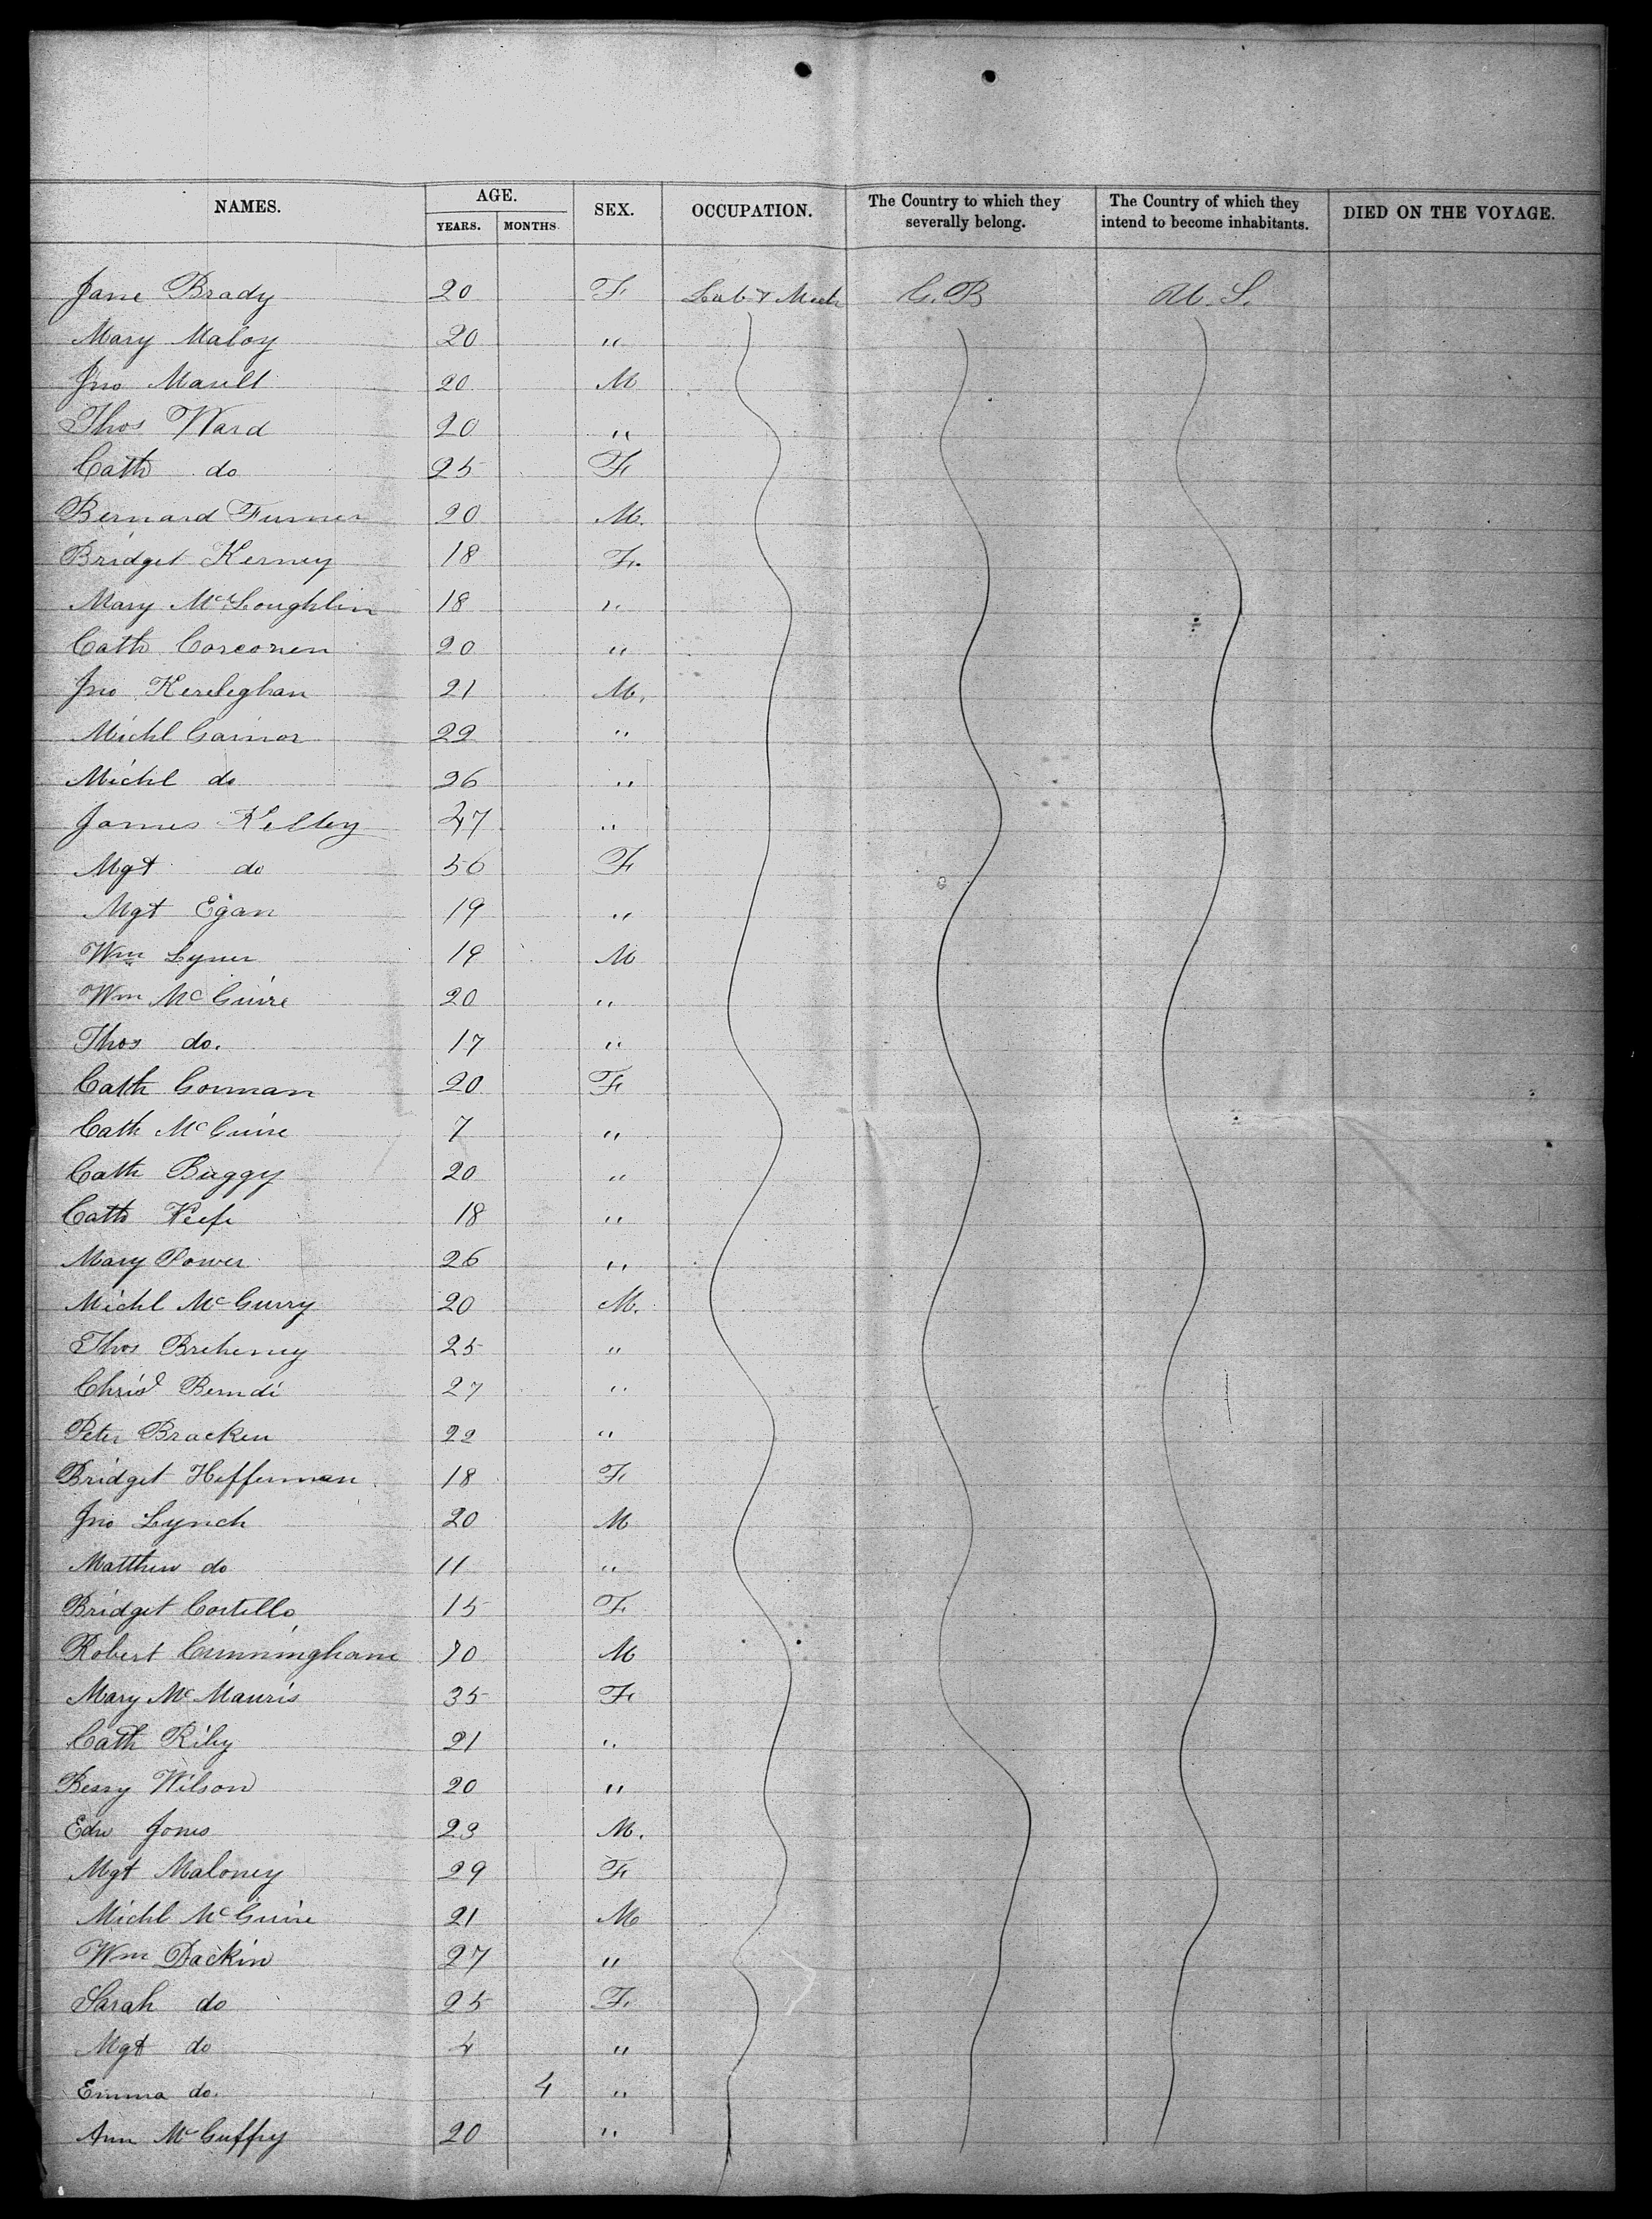 NAMES. AGE. SEX. OCCUPATION. The Country to which they severally belong. The Country of which they intend to become inhabitants. DIED ON THE VOYAGE.
YEARS. MONTHS.
Jane Brady 20 F Lab & Mech G. B U. S.
Mary Maloy 20 "
Jno 20 M
Thos Ward 20 "
Cath do 25 F
Bernard 20 M.
Bridget Kerney 18 F.
Mary McLoughlin 18 "
Cath Corconen 20 "
Jno 21 M.
Michl Gainor 22 "
Michl do 26 "
James Kelley 47 "
Mgt do 56 F
Mgt Egan 19 "
Wm Lyner 19 M
Wm McGuire 20 "
Thos do. 17 "
Cath Gorman 20 F
Cath McGuire 7 "
Cath Buggy 20 "
Cath Keefe 18 "
Mary Power 26 "
Michl McGurry 20 M.
Thos Breheney 25 "
Christ Berndi 27 "
Peter Bracken 22 "
Bridget Heffernan 18 F
Jno Lynch 20 M
Matthew do 11 "
Bridget Costello 15 F
Robert Cunningham 70 M
Mary McMauris 35 F
Cath Riley 21 "
Bessy Wilson 20 "
Edw Jones 23 M.
Mgt Maloney 29 F
Michl McGuire 21 M
Wm Dackin 27 "
Sarah do 25 F.
Mgt do 4 "
Emma do. 4 "
Ann McGuffry 20 "